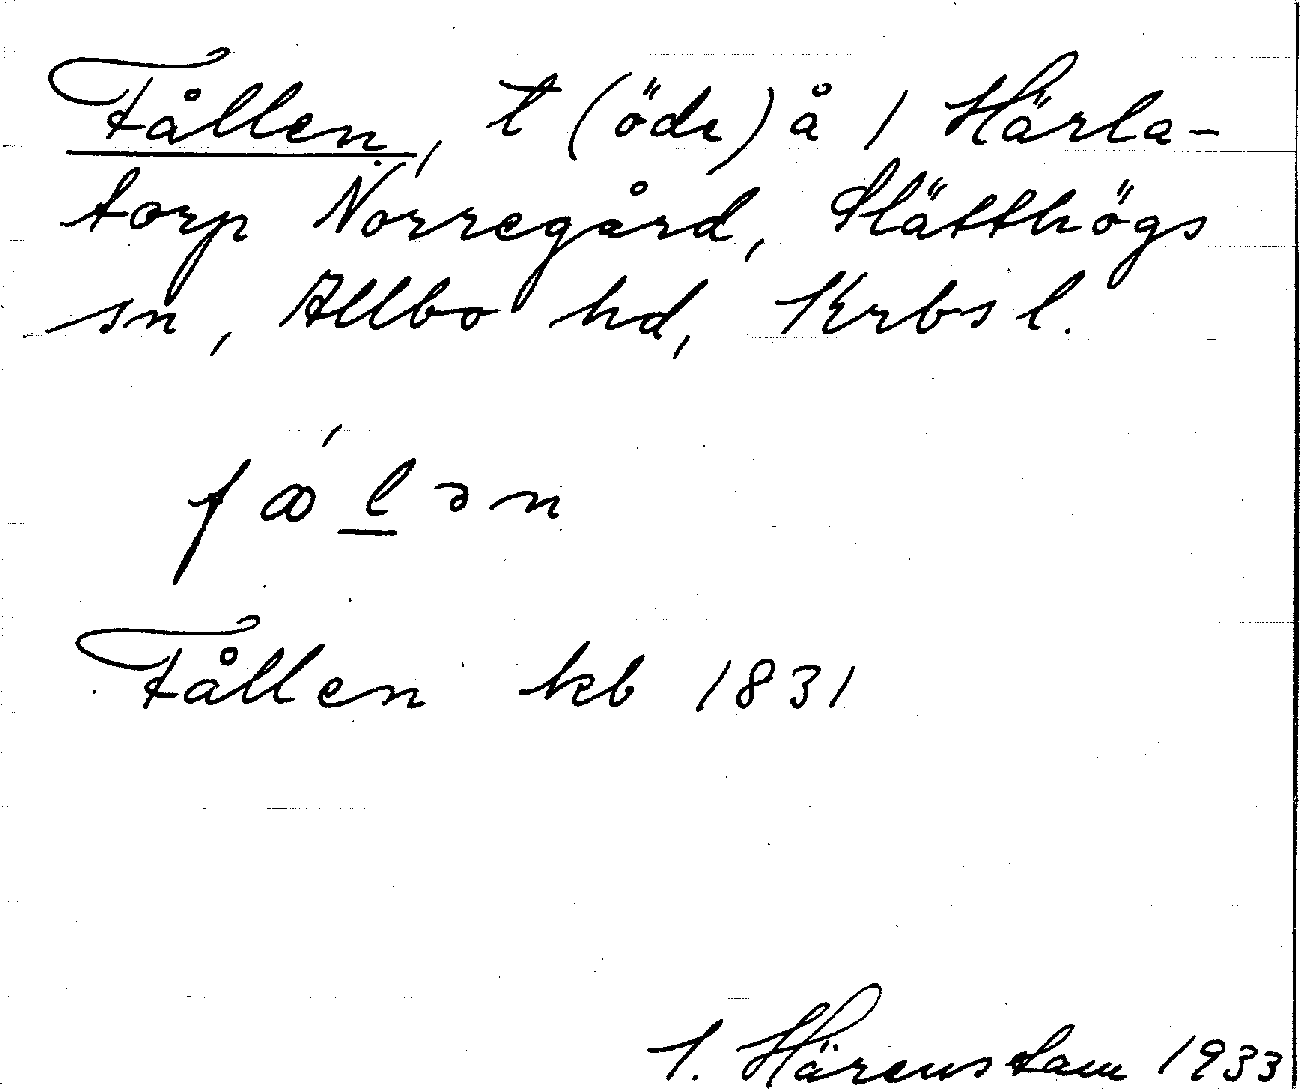 Fållen, t (öde) å / Härla-
torp Norregård, Slätthögs
sn, Allbo hd, Krbs l.
fꝏ́lən
Fållen kb 1831
Härenstam 1933